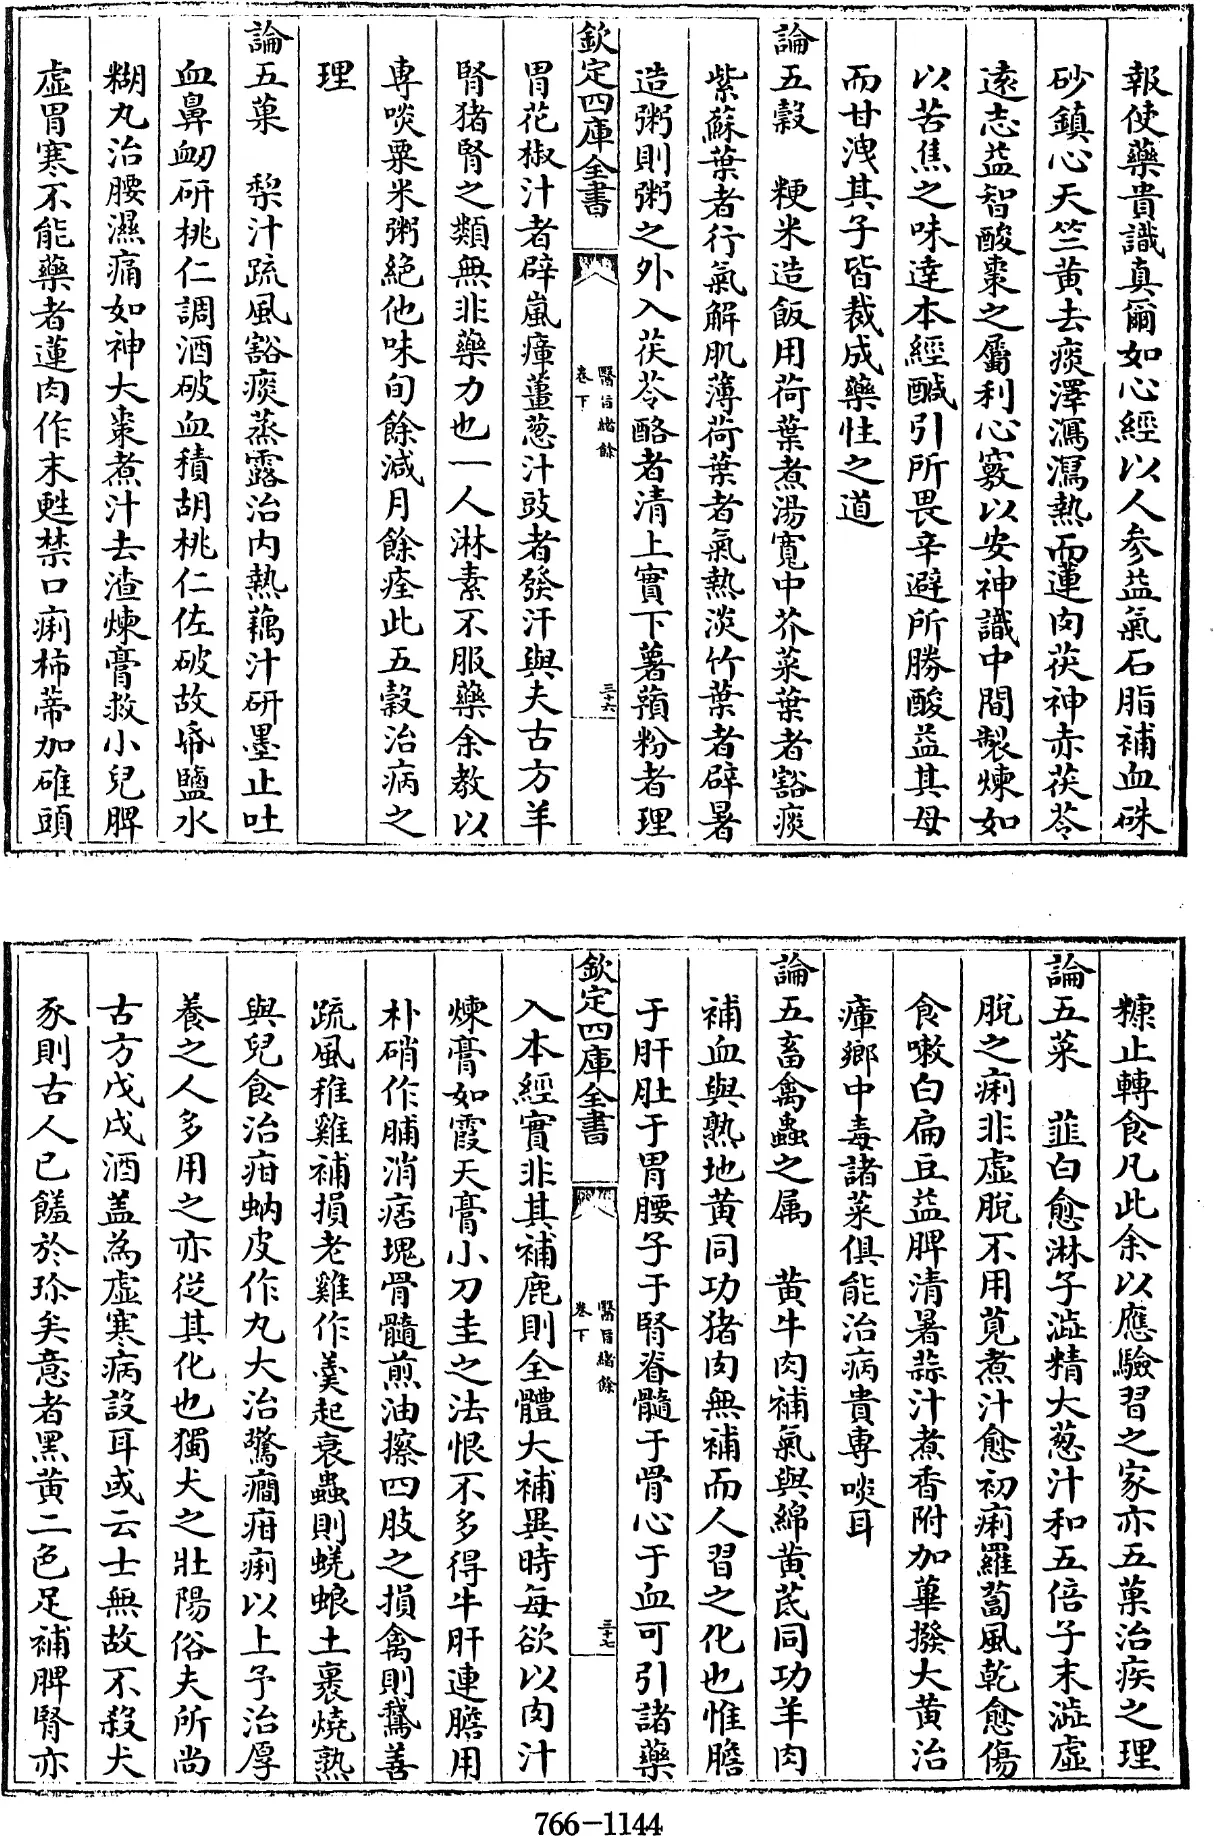 報使藥貴識真爾如心經以人參益氣石脂補血硃
砂鎮心天竺黄去痰澤瀉瀉熱而蓮肉茯神赤茯苓
遠志益智酸棗之屬利心竅以安神識中間製煉如
以苦焦之味達本經醎引所畏辛避所勝酸益其母
而甘洩其子皆裁成藥性之道
論五穀　粳米造飯用荷葉煮湯寛中芥菜葉者豁痰
紫蘇葉者行氣解肌薄荷葉者氣熱淡竹葉者辟暑
造粥則粥之外入茯苓酪者清上實下薯蕷粉者理
欽定四庫全書
醫旨緒餘
卷下
三十六
胃花椒汁者辟嵐瘴薑葱汁豉者發汗與夫古方羊
腎猪腎之類無非藥力也一人淋素不服藥余教以
専啖粟米粥絶他味旬餘減月餘痊此五穀治病之
理
論五菓　梨汁疏風豁痰蒸露治内熱藕汁研墨止吐
血鼻衂研桃仁調酒破血積胡桃仁佐破故帋鹽水
糊丸治腰濕痛如神大棗煮汁去渣煉膏救小兒脾
虚胃寒不能藥者蓮肉作末甦禁口痢柿蒂加碓頭
糠止轉食凡此余以應驗習之家亦五菓治疾之理
論五菜　韮白愈淋子澁精大葱汁和五倍子末澁虚
脫之痢非虚脫不用莧煮汁愈初痢羅蔔風乾愈傷
食嗽白扁豆益脾清暑蒜汁煮香附加蓽撥大黄治
瘴鄉中毒諸菜俱能治病貴専啖耳
論五畜禽蟲之属　黄牛肉補氣與綿黄茋同功羊肉
補血與熟地黄同功猪肉無補而人習之化也惟膽
于肝肚于胃腰子于腎脊髓于骨心于血可引諸藥
欽定四庫全書
醫旨緒餘
卷下
三十七
入本經實非其補鹿則全體大補異時每欲以肉汁
煉膏如霞天膏小刀圭之法恨不多得牛肝連膽用
朴硝作脯消痞塊骨髓煎油擦四肢之損禽則鵞善
疏風稚雞補損老雞作羹起衰蟲則蜣蜋土裹燒熟
與兒食治疳蚋皮作丸大治驚癎疳痢以上予治厚
養之人多用之亦從其化也獨犬之壯陽俗夫所尚
古方戊戌酒盖為虚寒病設耳或云士無故不殺犬
豕則古人已饈於珍矣意者黒黄二色足補脾腎亦
766-1144